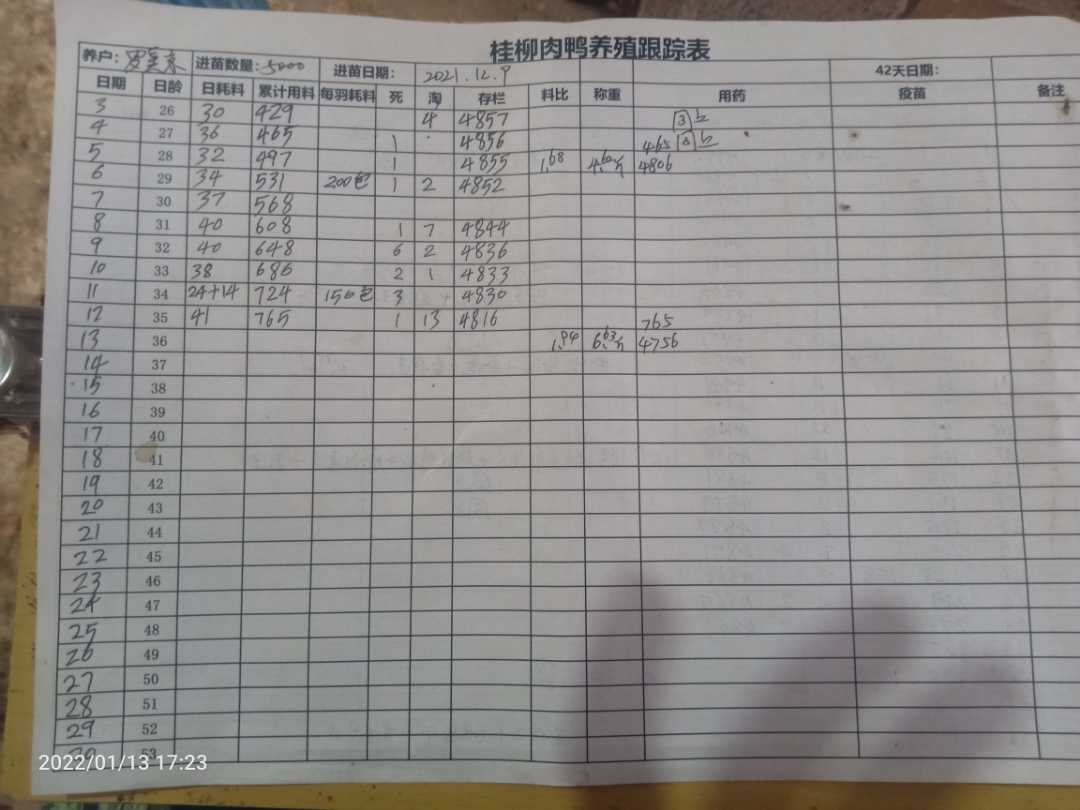 桂柳肉鸭养殖跟踪表
养户: 进苗数量:5000 进苗日期: 2021.12.9 42天日期:
日期 日龄 日耗料 累计用料 每羽耗料 死 淘 存栏 料比 称重 用药 疫苗 备注
3 26 30 429 4 4857
4 27 36 465 1 4856 465
5 28 32 497 1 4855 1.68 4.60斤 4806
6 29 34 531 200包 1 2 4852
7 30 37 568
8 31 40 608 1 7 4844
9 32 40 648 6 2 4836
10 33 38 686 2 1 4833
11 34 24+14 724 150包 3 4830
12 35 41 765 1 13 4816 765
13 36 1.94 6.63斤 4756
14 37
15 38
16 39
17 40
18 41
19 42
20 43
21 44
22 45
23 46
24 47
25 48
26 49
27 50
28 51
29 52
30 53
2022/01/13 17:23